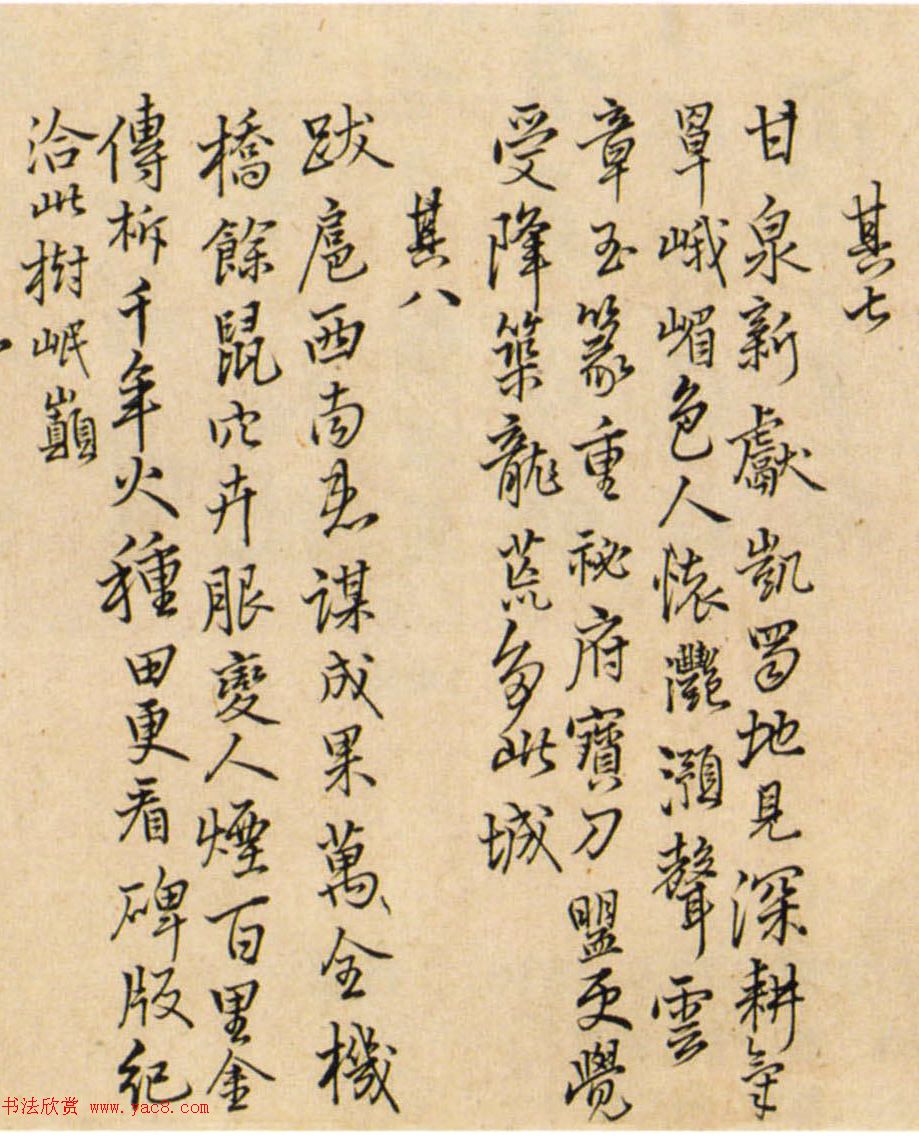 其七
甘泉新獻凱蜀地見深耕氣
罩峨嵋色人懷灩澦聲雲
章玉篆重祕府寶刀盟更覺
受降築龍荒多此城
其八
跋扈西南患謀成果萬全機
橋餘鼠穴卉服變人煙百里金
傳柝千年火種田更看碑版紀
洽此樹岷巔
书法欣赏 www.yac8.com